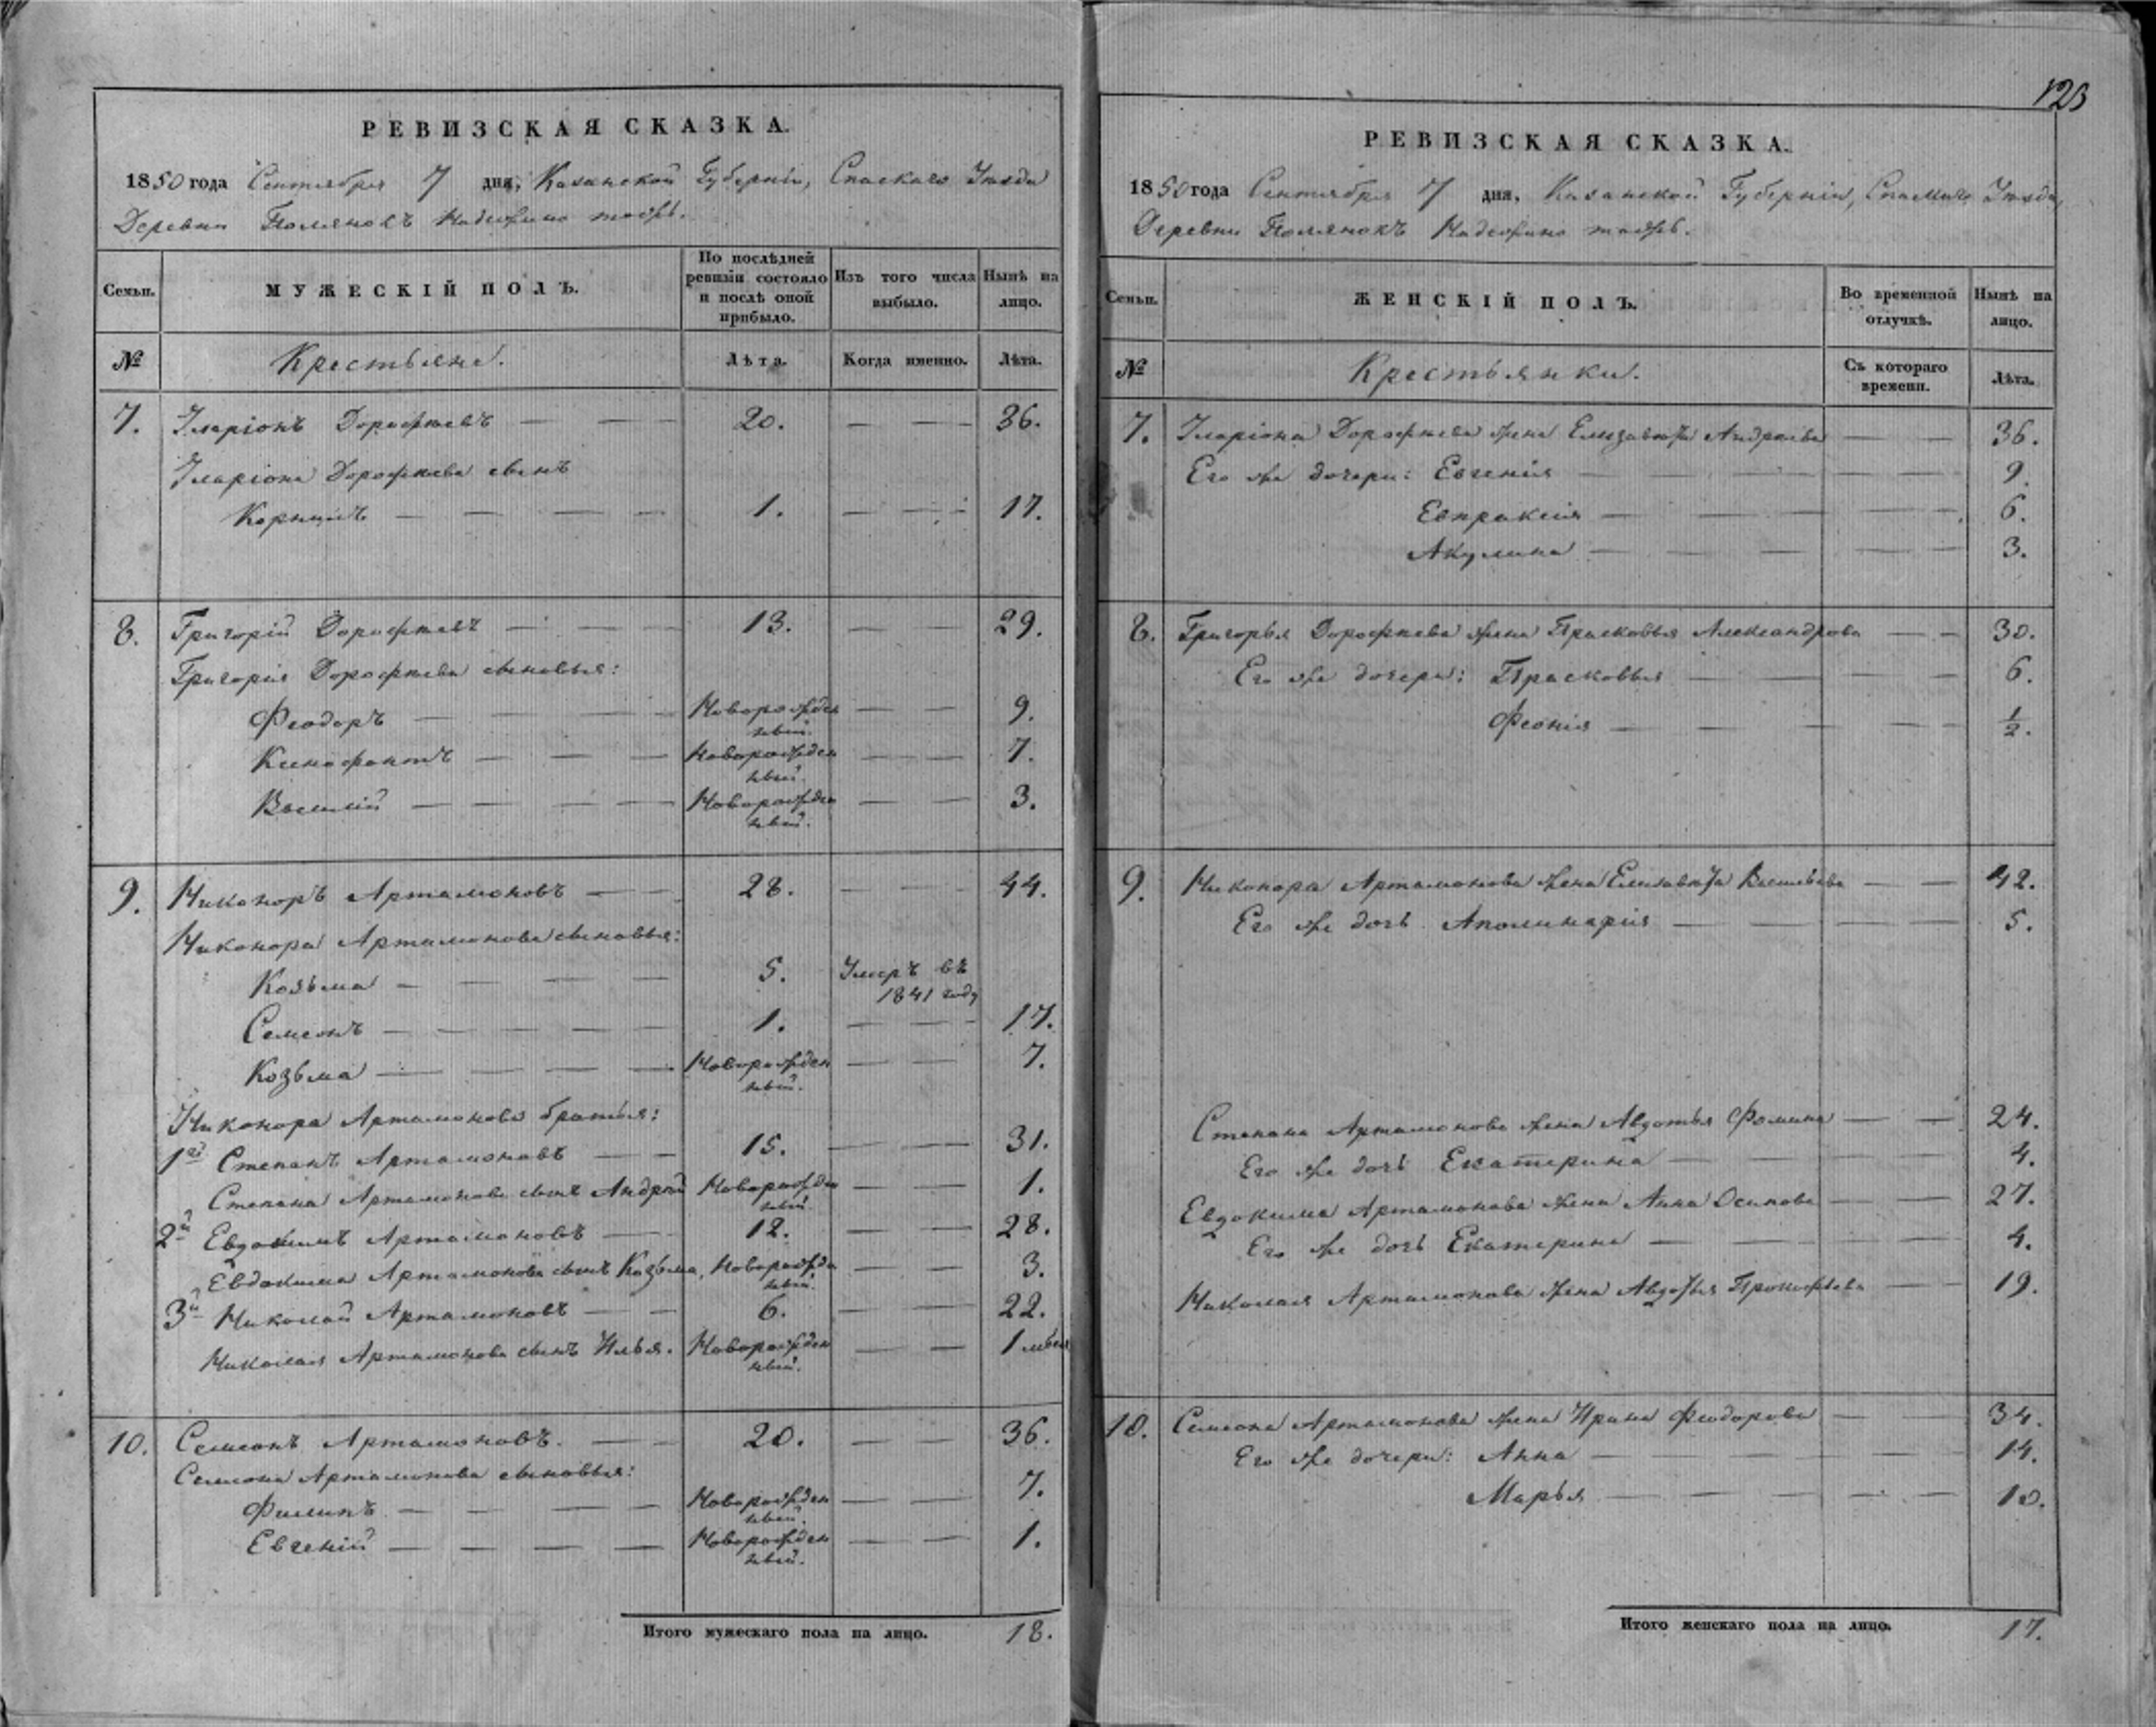 123
РЕВИЗСКАЯ СКАЗКА.
1850 года Сентября 7 дня, Казанской Губерніи, Спаскаго Уѣзда
Деревни Полянокъ Надеѫино тоѫъ.
Семьи.
МУЖЕСКІЙ ПОЛЪ.
По послѣдней ревизіи состояло и послѣ оной прибыло.
Изъ того числа выбыло.
Нынѣ на лицо.
№
Крестьяне.
Лѣта.
Когда именно.
Лѣта.
7. Иларіонъ Дорофѣевъ — — 20. — — 36.
Иларіона Дорофѣева сынъ
Корнилъ — — — — 1. — — 17.
8. Григорій Дорофѣевъ — — 13. — — 29.
Григорія Дорофѣева сыновья:
Феодоръ — — — Новорожденный. — — 9.
Ксенофонтъ — — — Новорожденный. — — 7.
Василій — — — — Новорожденный. — — 3.
9. Никоноръ Артамоновъ — — 28. — — 44.
Никонора Артамонова сыновья:
Козьма — — — 5. Умеръ въ 1841 году
Семенъ — — — — 1. — — 17.
Козьма — — — — Новорожденный. — — 7.
Никонора Артамонова братья:
1й Степанъ Артамоновъ — — 15. — — 31.
Степана Артамонова сынъ Андрей Новорожденный. — — 1.
2й Евдокимъ Артамоновъ — — 12. — — 28.
Евдокима Артамонова сынъ Козьма, Новорожденный. — — 3.
3й Николай Артамоновъ — — 6. — — 22.
Николая Артамонова сынъ Илья. Новорожденный. — — 1 мѣся
10. Семенъ Артамоновъ. — — 20. — — 36.
Семена Артамонова сыновья:
Филипъ — — — — Новорожденный. — — 7.
Евгеній — — — — Новорожденный. — — 1.
Итого мужескаго пола на лицо. 18.
РЕВИЗСКАЯ СКАЗКА.
1850 года Сентября 7 дня, Казанской Губерніи, Спаскаго Уѣзда,
Деревни Полянокъ Надеѫино тоѫъ.
Семьи.
ЖЕНСКІЙ ПОЛЪ.
Во временной отлучкѣ.
Нынѣ на лицо.
№
Крестьянки.
Съ котораго времени.
Лѣта.
7. Иларіона Дорофѣева жена Елизавета Андреева — — 36.
Его же дочери: Евгенія — — — — 9.
Евпраксія — — — — 6.
Акулина — — — — 3.
8. Григорья Дорофѣева жена Прасковья Александрова — — 30.
Его же дочери: Прасковья — — — — 6.
Феонія — — — — 1/2.
9. Никонора Артамонова жена Елизавета Васильева — — 42.
Его же дочь Аполинарія — — — — 5.
Степана Артамонова жена Авдотья Фомина — — 24.
Его же дочь Екатерина — — — — 4.
Евдокима Артамонова жена Анна Осипова — — 27.
Его же дочь Екатерина — — — — 4.
Николая Артамонова жена Авдотья Прокофьева — — 19.
10. Семена Артамонова жена Ирина Феодорова — — 34.
Его же дочери: Анна — — — — 14.
Марья — — — — 10.
Итого женскаго пола на лицо. 17.